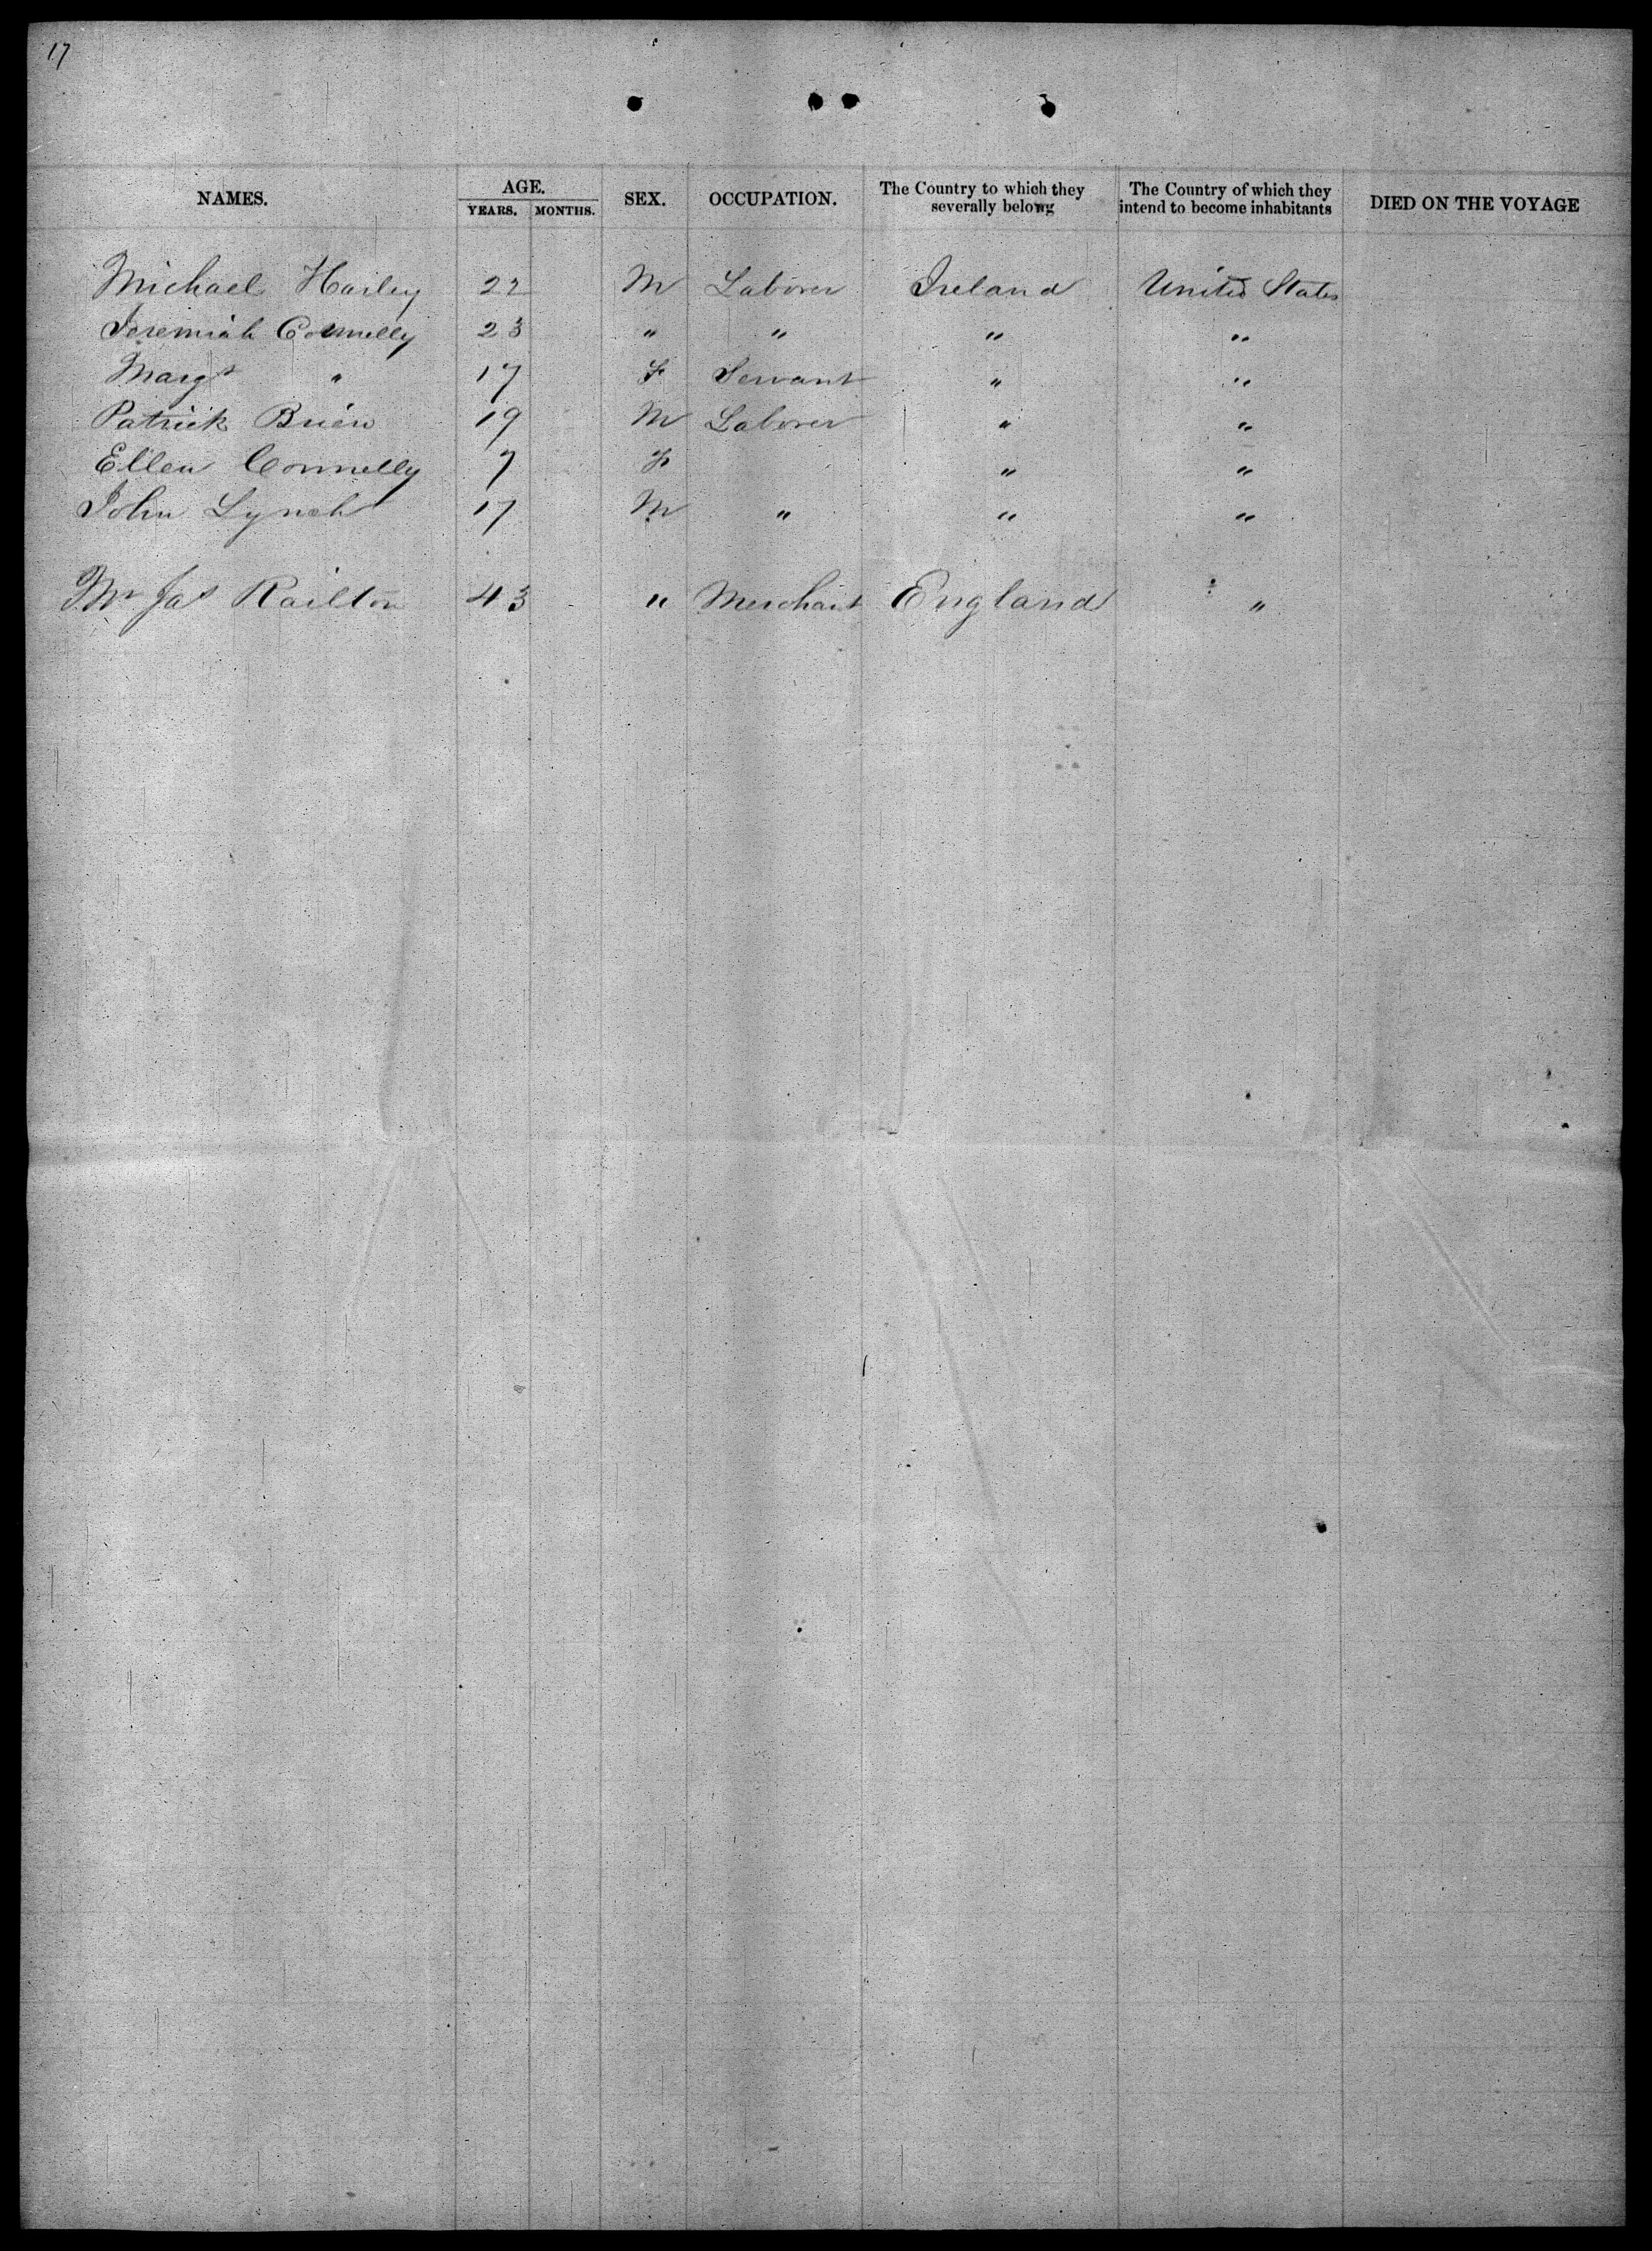 17
NAMES. AGE. SEX. OCCUPATION. The Country to which they severally belong The Country of which they intend to become inhabitants DIED ON THE VOYAGE
YEARS. MONTHS.
Michael Harley 22 M Laborer Ireland United States
Jeremiah Connelly 23 " " " "
Margt " 17 F Servant " "
Patrick Brien 19 M Laborer " "
Ellen Connelly 7 F " "
John Lynch 17 M " " "
Mr Jas Railton 43 " Merchant England "